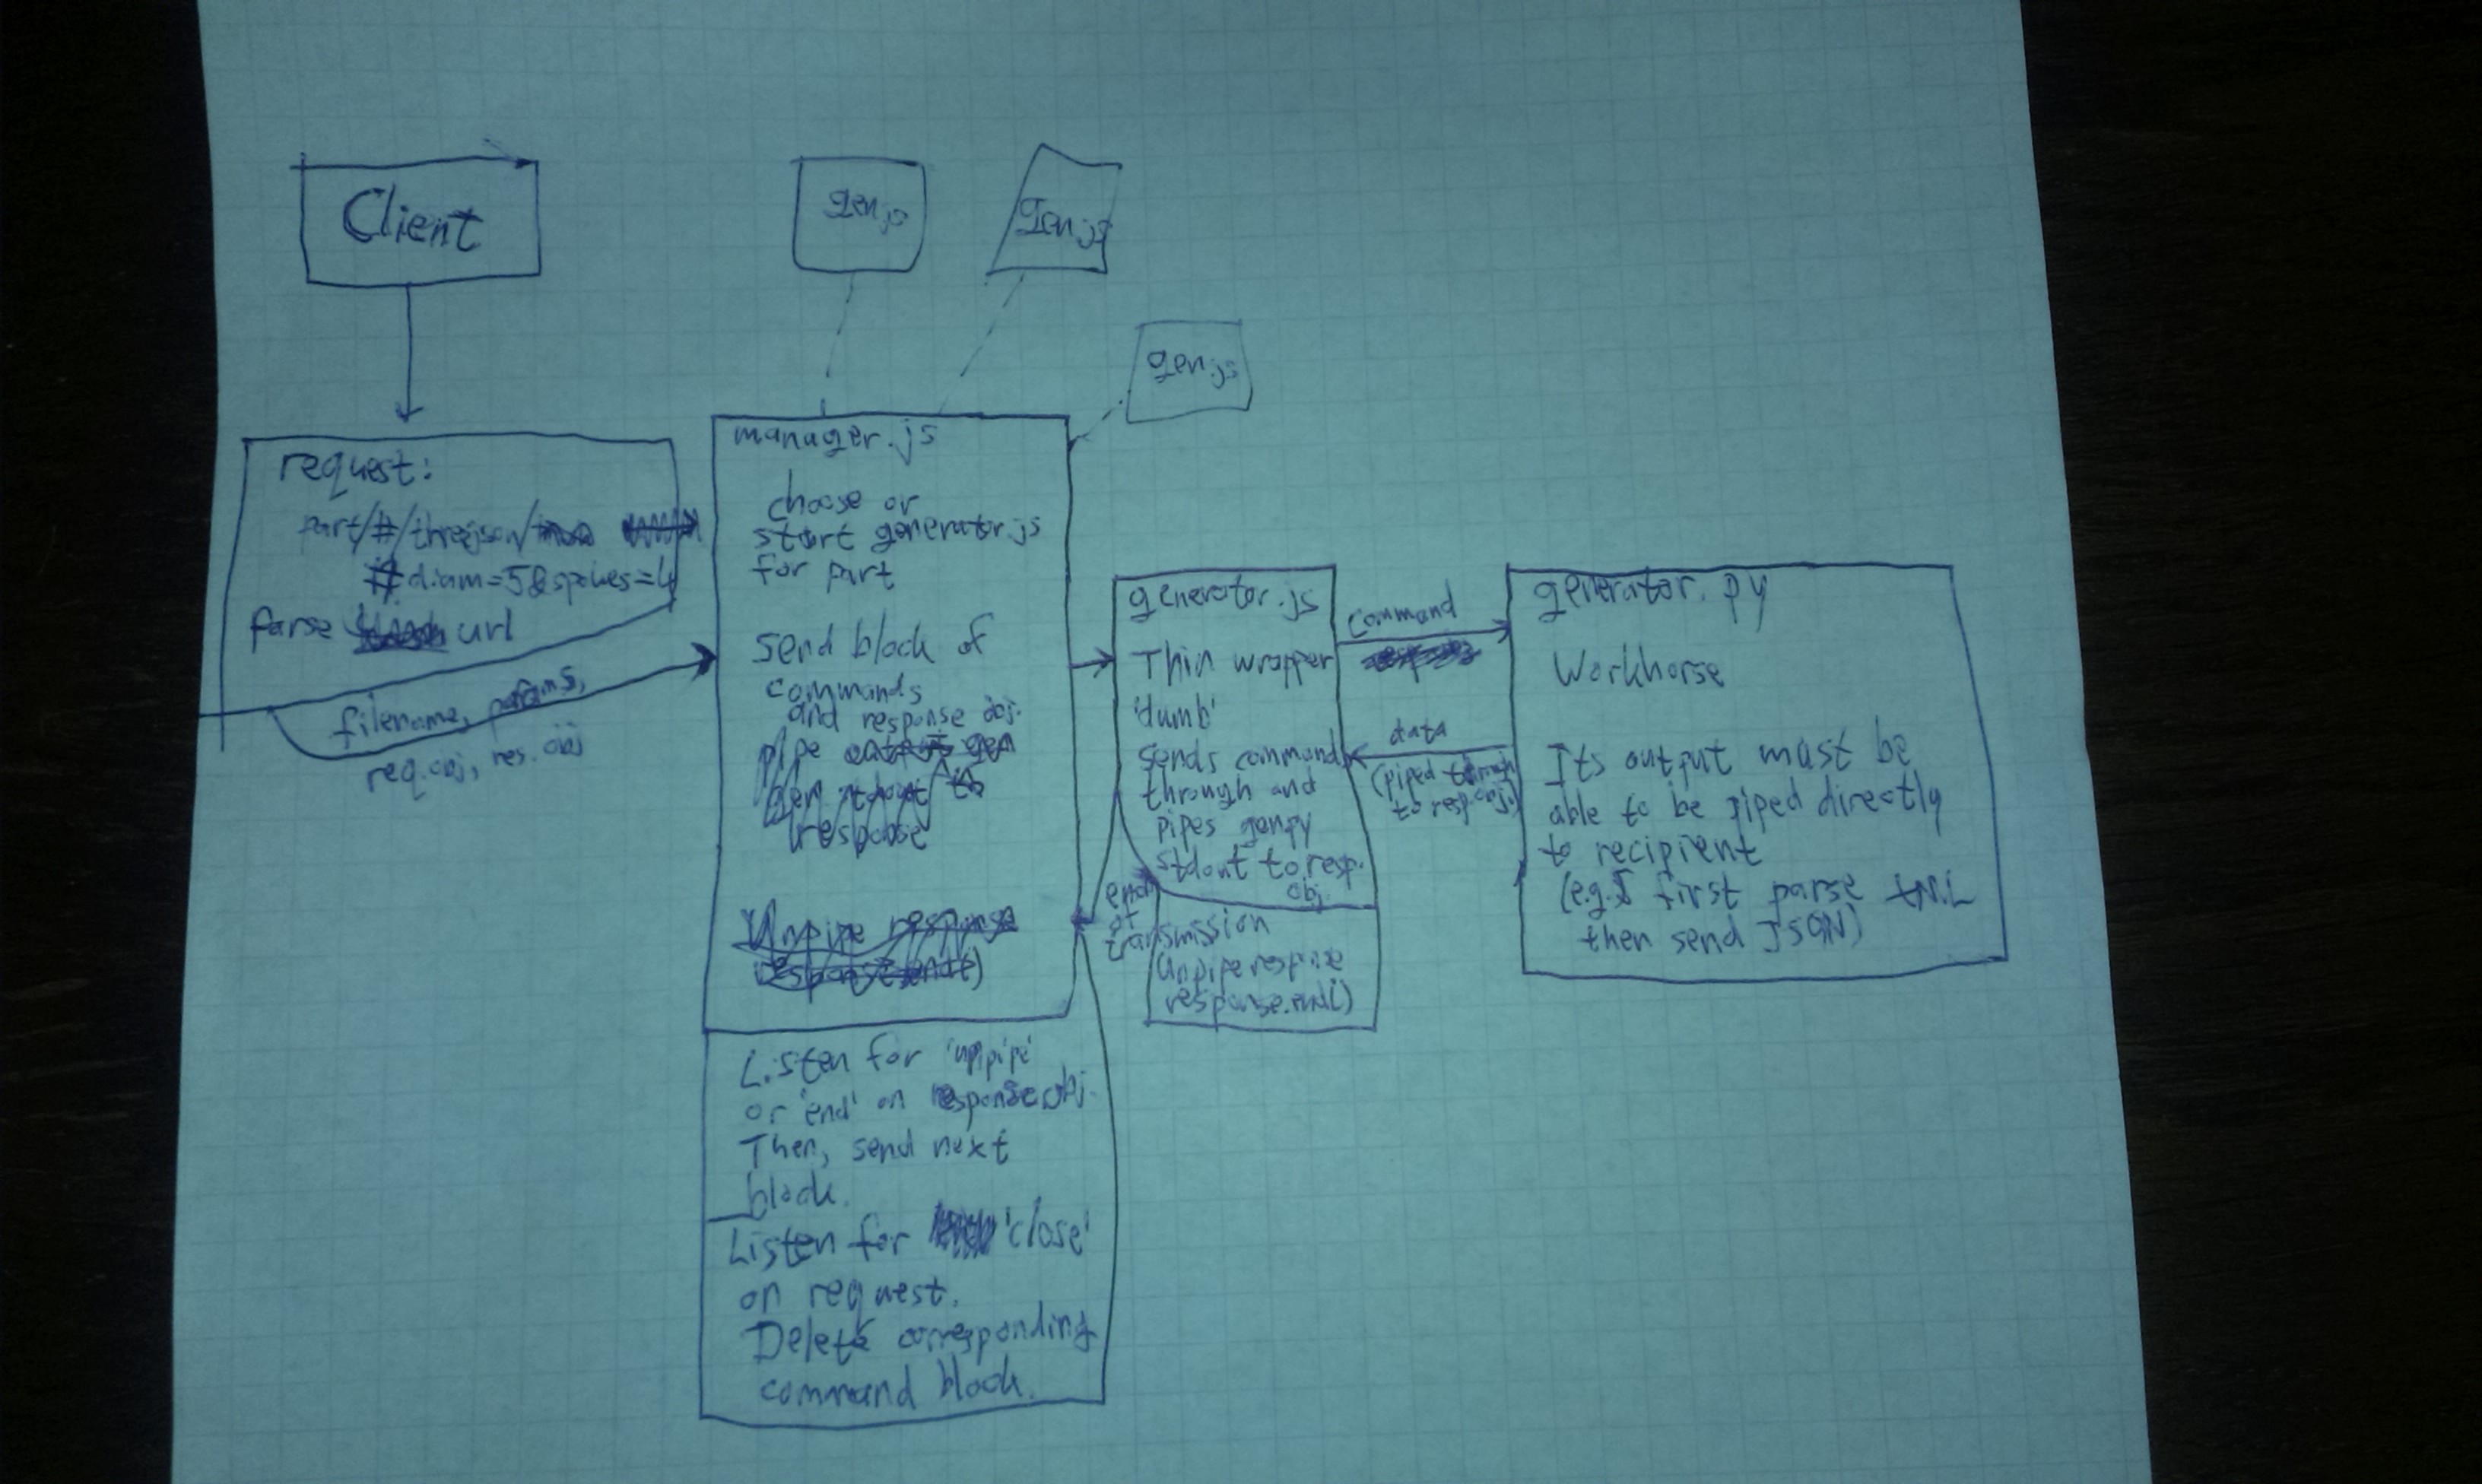 Client
gen.js
gen.js
gen.js
request:
part/#/threejson/
#diam=5&spokes=4
parse url
filename, params,
req.obj, res.obj
manager.js
choose or
start generator.js
for part
send block of
commands
and response obj.
pipe output gen
gen stdout to
response
Unpipe response
response.end()
Listen for 'unpipe'
or 'end' on response obj.
Then, send next
block.
Listen for 'close'
on request.
Delete corresponding
command block.
generator.js
Thin wrapper
'dumb'
sends command
through and
pipes genpy
stdout to resp.
obj.
end
of
transmission
Unpipe response
response.end()
command
data
(piped through
to resp.obj.)
generator.py
Workhorse
Its output must be
able to be piped directly
to recipient
(e.g. first parse
then send JSON)